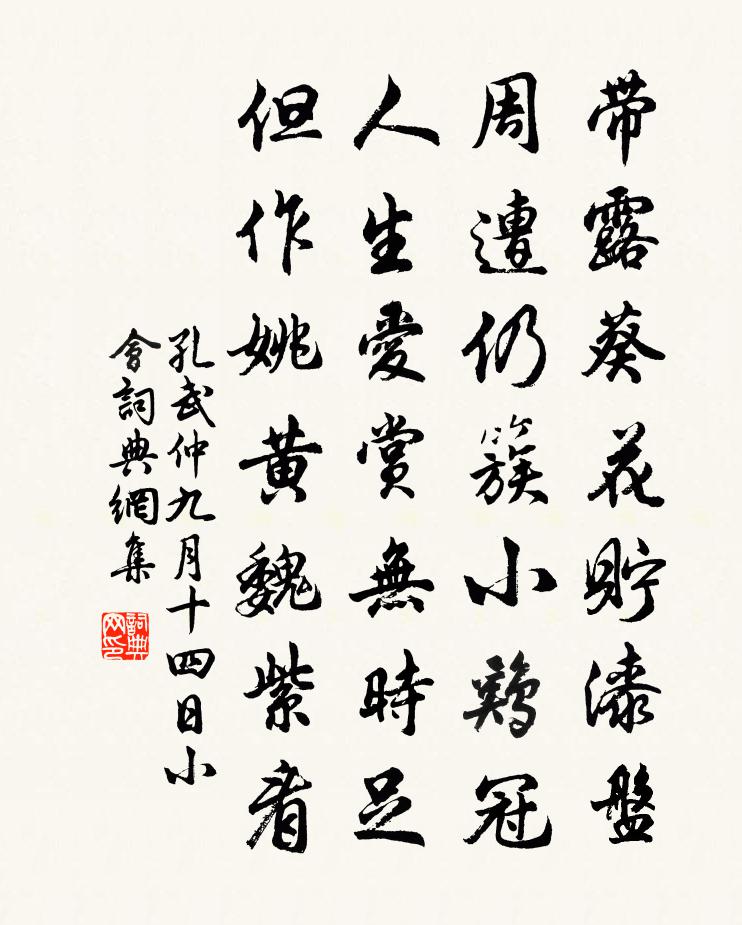 帶露葵花貯漆盤
周遭仍簇小鷄冠
人生愛賞無時足
但作姚黃魏紫看
孔武仲九月十四日小
會詞典網集
詞典网印